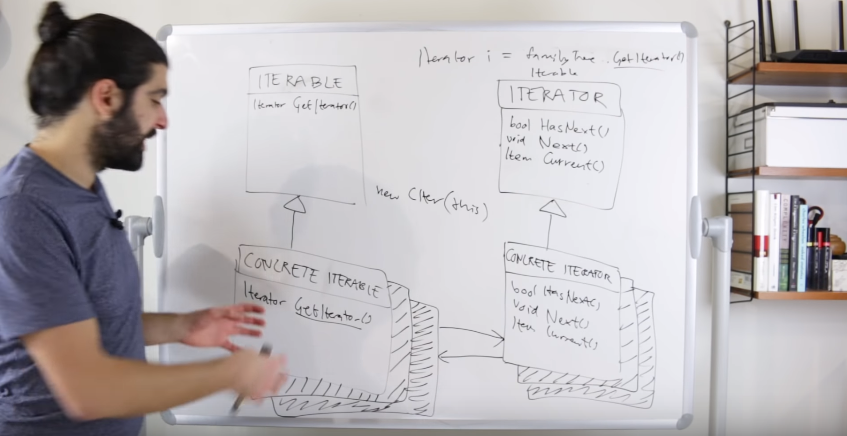 Iterator i = familyTree.GetIterator()
Iterable
ITERABLE
Iterator GetIterator()
ITERATOR
bool HasNext()
void Next()
Item Current()
new CIter(this)
CONCRETE ITERABLE
Iterator GetIterator()
CONCRETE ITERATOR
bool HasNext()
void Next()
Item Current()